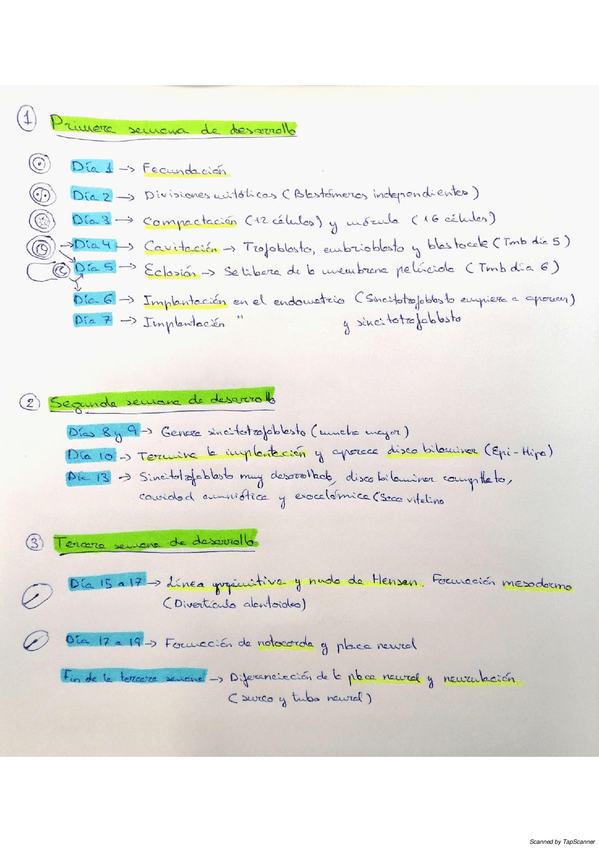 1 Primera semana de desarrollo
Día 1 -> Fecundación
Día 2 -> Divisiones mitóticas (Blastómeros independientes)
Día 3 -> Compactación (12 células) y mórula (16 células)
Día 4 -> Cavitación -> Trofoblasto, embrioblasto y blastocele (Tmb día 5)
Día 5 -> Eclosión -> Se libera de la membrana pelúcida (Tmb día 6)
Día 6 -> Implantación en el endometrio (Sincitotrofoblasto empieza a aparecer)
Día 7 -> Implantación " y sincitotrofoblasto
2 Segunda semana de desarrollo
Días 8 y 9 -> Genera sincitotrofoblasto (mucho mayor)
Día 10 -> Termina la implantación y aparece disco bilaminar (Epi-Hipo)
Día 13 -> Sincitotrofoblasto muy desarrollado, disco bilaminar completo,
cavidad amniótica y exocelómica (Saco vitelino
3 Tercera semana de desarrollo
Día 15 a 17 -> Línea primitiva y nudo de Hensen. Formación mesodermo
(Divertículo alantoideo)
Día 17 a 19 -> Formación de notocorda y placa neural
Fin de la tercera semana -> Diferenciación de la placa neural y neurulación
(surco y tubo neural)
Scanned by TapScanner